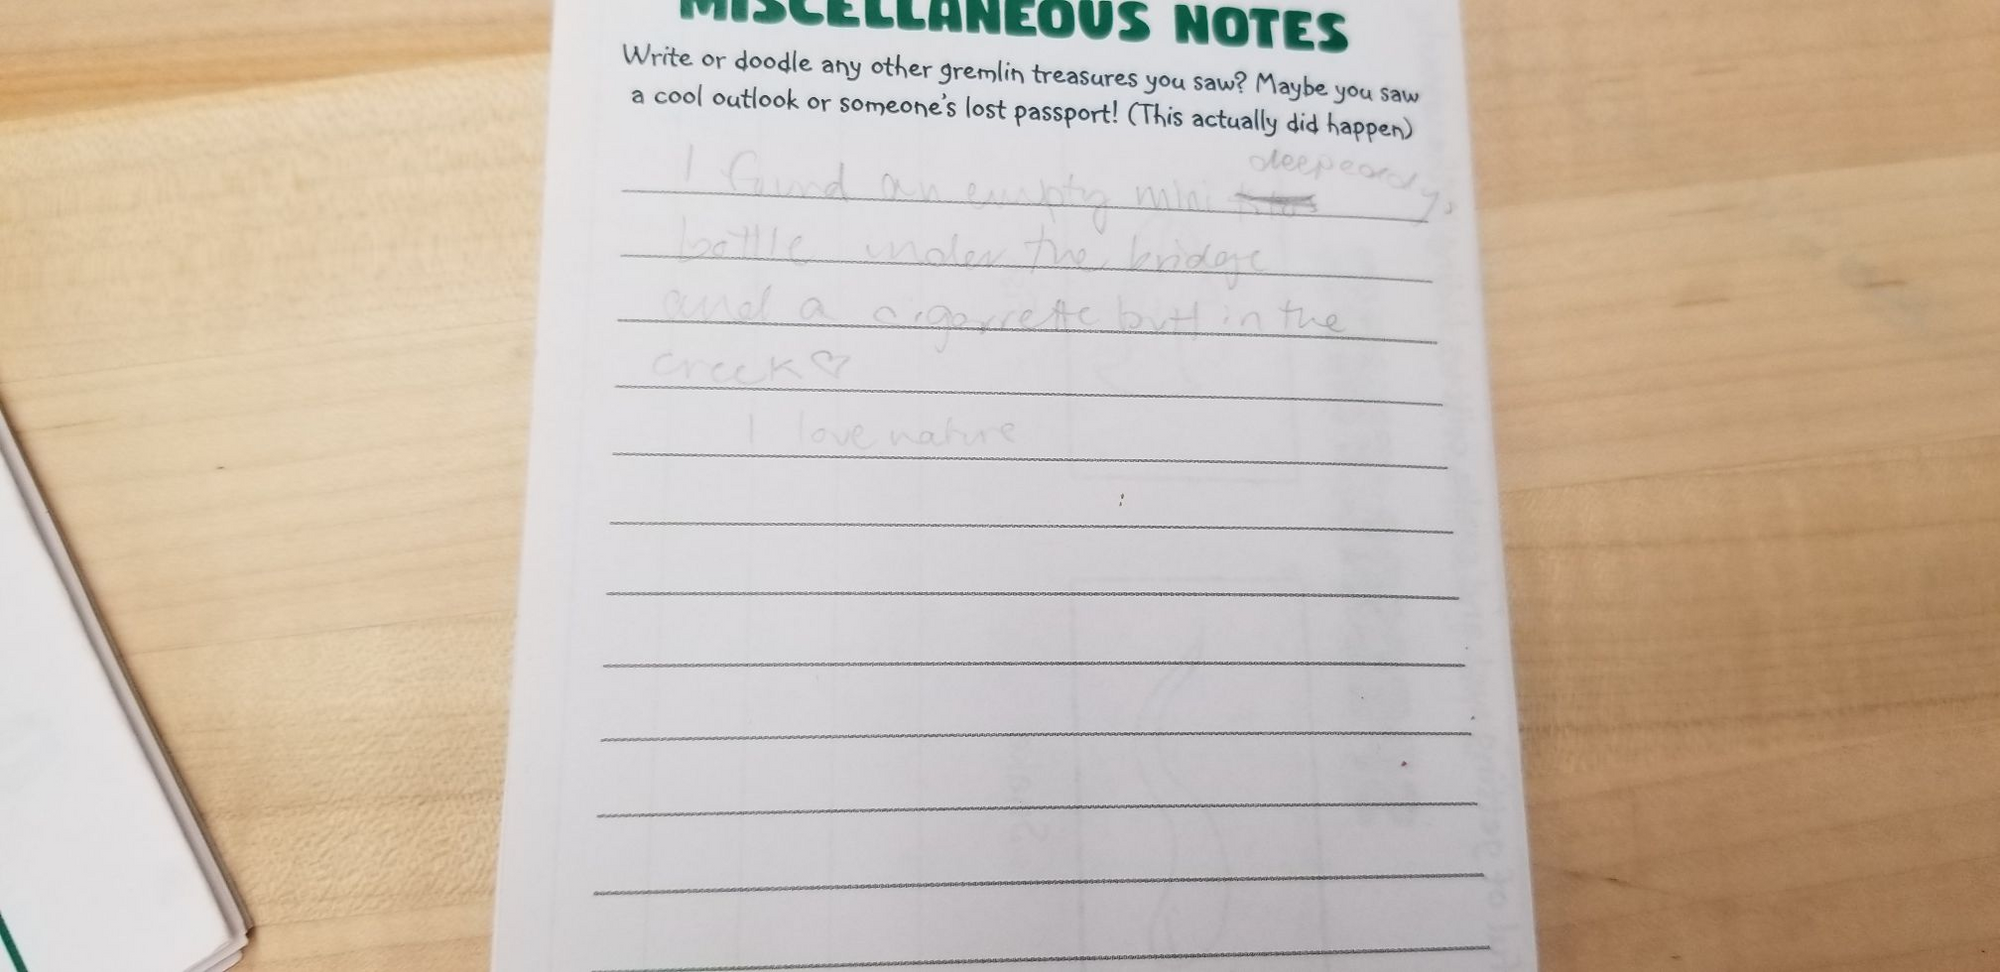 MISCELLANEOUS NOTES
Write or doodle any other gremlin treasures you saw? Maybe you saw
a cool outlook or someone's lost passport! (This actually did happen)
I found an empty mini deepeardy's
bottle under the bridge
and a cigarrette butt in the
creek♡
I love nature